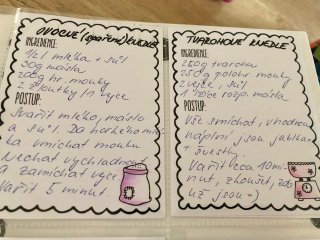 OVOCNÉ (spařené) KNEDLE
INGREDIENCE:
1/2 l mléka + sůl
30g másla
200g hr. mouky
2 žloutky / 1 vejce
POSTUP:
Svařit mléko, máslo
a sůl. Do horkého mlé-
ka vmíchat mouku.
Nechat vychladnout
a zamíchat vejce.
Vařit 5 minut.
TVAROHOVÉ KNEDLE
INGREDIENCE:
250g tvarohu
250g polohr. mouky
2 vejce, sůl
rozp. másla
POSTUP:
Vše smíchat, vhodnou
náplní jsou jablka
+ švestky.
Vařit cca 10 mi-
nut, zkoušet, zda
už jsou =)